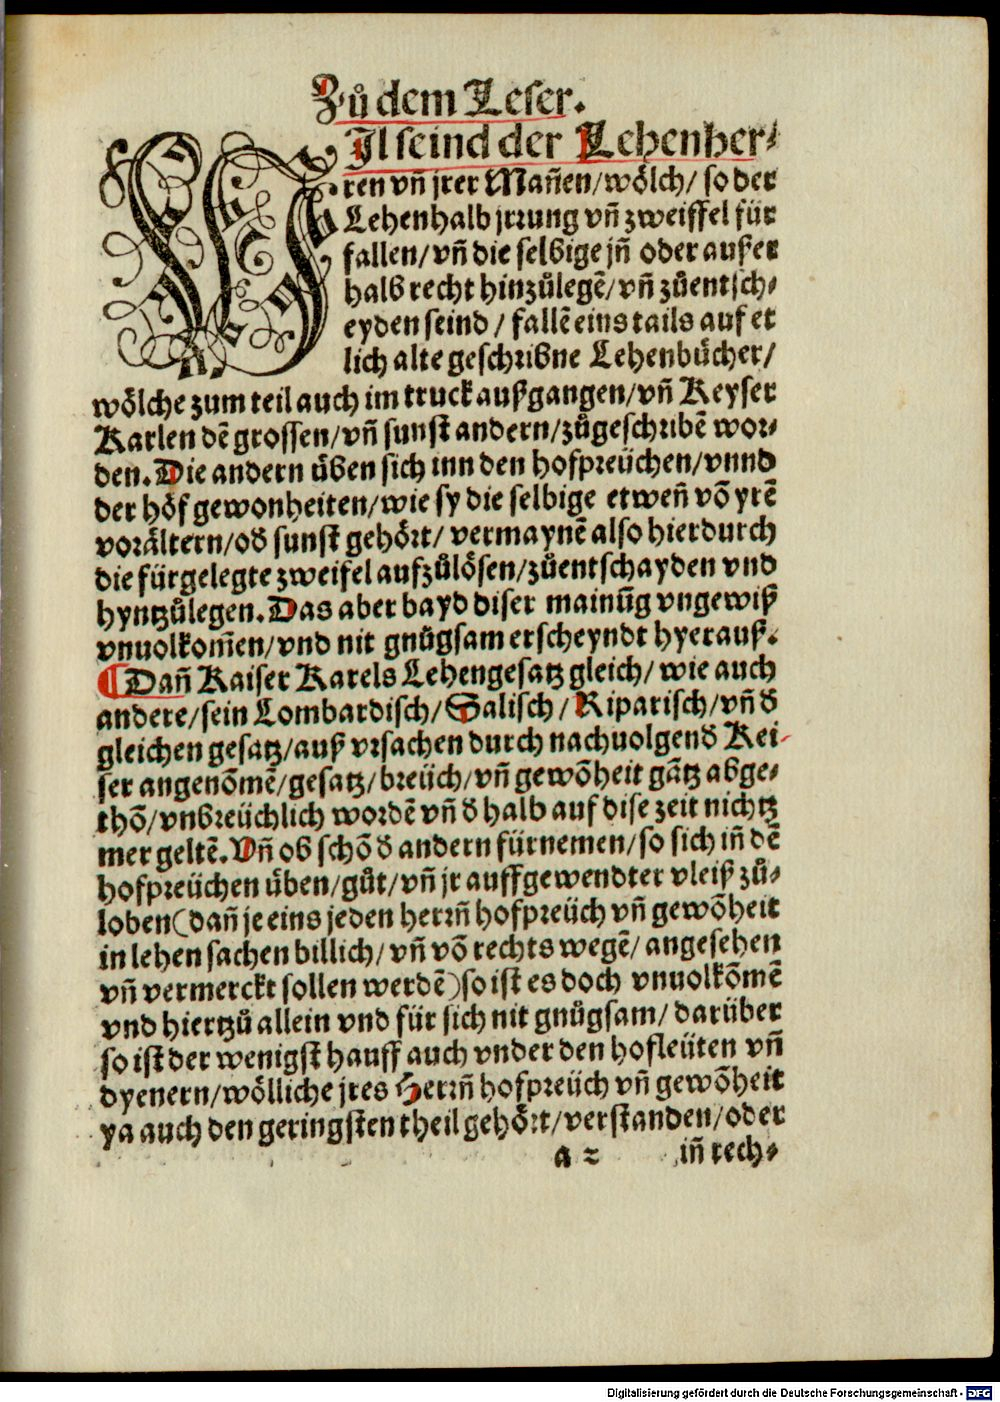 Zů dem Leser.
VIl seind der Lehenher⸗
ren vñ jrer Mañen/wölch/ so der
Lehenhalb jrrung vñ zweiffel für
fallen/vñ die selbige jñ oder ausser
halb recht hinzůlegē/vñ zůentsch⸗
eyden seind / fallē eins tails auf et
lich alte geschribne Lehenbücher/
wölche zum teil auch im truck außgangen/vñ Keyser
Karlen dē grossen/vñ sunst andern/zůgeschribē wor⸗
den. Die andern üben sich inn den hofpreüchen/vnnd
der höf gewonheiten/wie sy die selbige etweñ vō yrē
vorältern/od sunst gehört/ vermaynē also hierdurch
die fürgelegte zweifel aufzůlösen/zůentschayden vnd
hyntzůlegen. Das aber bayd diser mainūg vngewiß
vnuolkom̄en/vnd nit gnůgsam erscheyndt hyerauß.
¶ Dañ Kaiser Karels Lehengesatz gleich/ wie auch
andere/sein Lombardisch/Salisch/ Riparisch/vñ d
gleichen gesatz/auß vrsachen durch nachuolgend Kei⸗
ser angenōmē/gesatz/breüch/vñ gewōheit gātz abge⸗
thō/vnbreüchlich wordē vñ d halb auf dise zeit nichtz
mer geltē. Vñ ob schō d andern fürnemen/so sich iñ dē
hofpreüchen üben/gůt/vñ jr auffgewendter vleiß zů⸗
loben(dañ je eins jeden herrñ hofpreüch vñ gewōheit
in lehen sachen billich/ vñ vō rechts wegē/ angesehen
vñ vermerckt sollen werdē)so ist es doch vnuolkōmē
vnd hiertzů allein vnd für sich nit gnůgsam/ darüber
so ist der wenigst hauff auch vnder den hofleüten vñ
dyenern/wölliche jres Herrñ hofpreüch vñ gewōheit
ya auch den geringsten theil gehört/verstanden/oder
a 2 iñ rech⸗
Digitalisierung gefördert durch die Deutsche Forschungsgemeinschaft - DFG